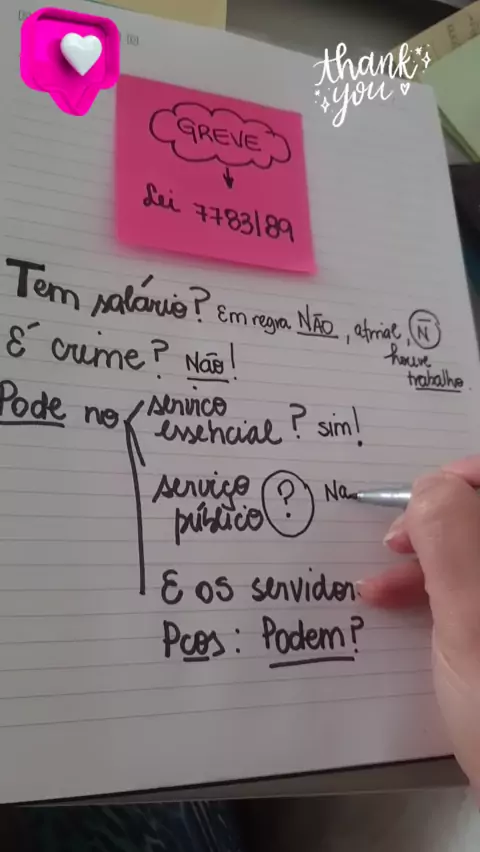 thank you
GREVE
Lei 7783/89
Tem salário? Em regra NÃO, afinal, Ñ
houve
trabalho.
É crime? Não!
Pode no serviço
essencial? sim!
serviço
público ? Na
E os servidor
Pcos: Podem?